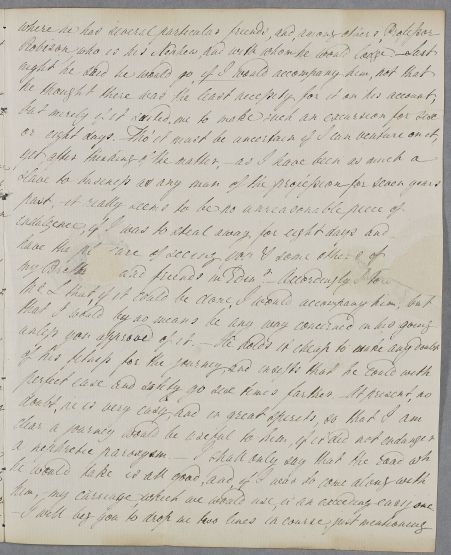 where he has several particular friends, and among others Professor
Robison who is his        , and with whom he would lodge — Last
night he said he would go, if I would accompany him, not that
he thought there was the least necessity for it on his account,
but merely if it suited me to make such an excursion for six
or eight days. — Tho' it must be uncertain if I can venture on it,
yet after thinking of the matter, — as I have been as much a
slave to business as any man of the profession, for seven years
past, — it really seems to be no unreasonable piece of
indulgence, if I was to steal away, for eight days and
have the pleasure of seeing you & some others of
my           and friends in Edinr. — Accordingly I told
him that, if it could be done, I would accompany him, but
that I would by no means be any way concerned in his going
unless you approved of it. — He holds it cheap to make any doubt
of his fitness for the journey, and insists that he could with
perfect ease and safety go five times farther. — At present, no
doubt, he is very easy, and in great spirits, so that I am
clear a journey would be useful to him, if it did not endanger
a nephritic paroxysm — I shall only say that the road wh
he would take is all good, and if I was to come along with
him, my carriage which we would use, is an exceeding easy one
— I will beg you to drop me two lines in course, just mentioning